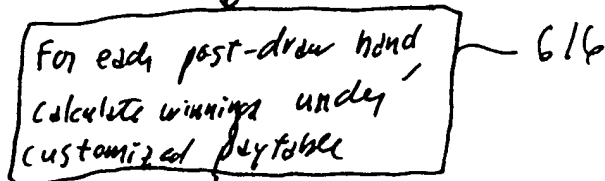 For each post-draw hand, 616
calculate winnings under
customized paytable